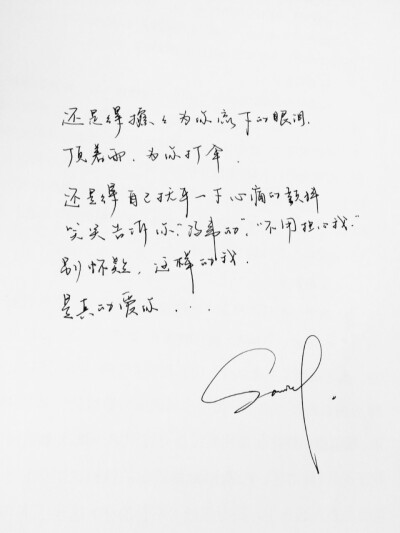 还是得擦擦为你流下的眼泪.
顶着雨,为你打伞.
还是得自己抚平一下心痛的
笑笑告诉你,"没事的","不用担心我."
别怀疑,这样的我.
是真的爱你...